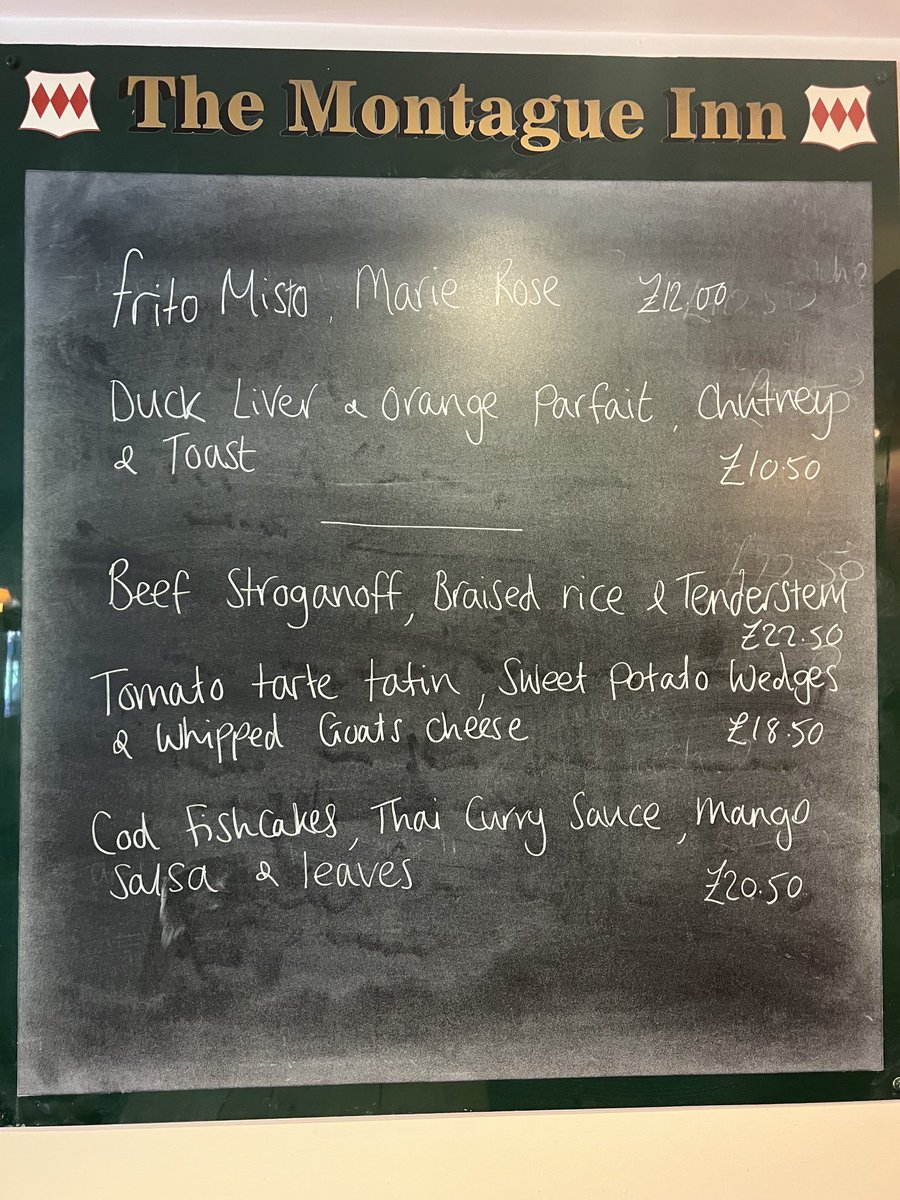 The Montague Inn
frito Misto, Marie Rose £12.00
Duck Liver & Orange Parfait, Chutney
& Toast £10.50
Beef Stroganoff, Braised rice & Tenderstem
£22.50
Tomato tarte tatin, Sweet Potato Wedges
& Whipped Goats cheese £18.50
Cod Fishcakes, Thai Curry Sauce, Mango
Salsa & leaves £20.50